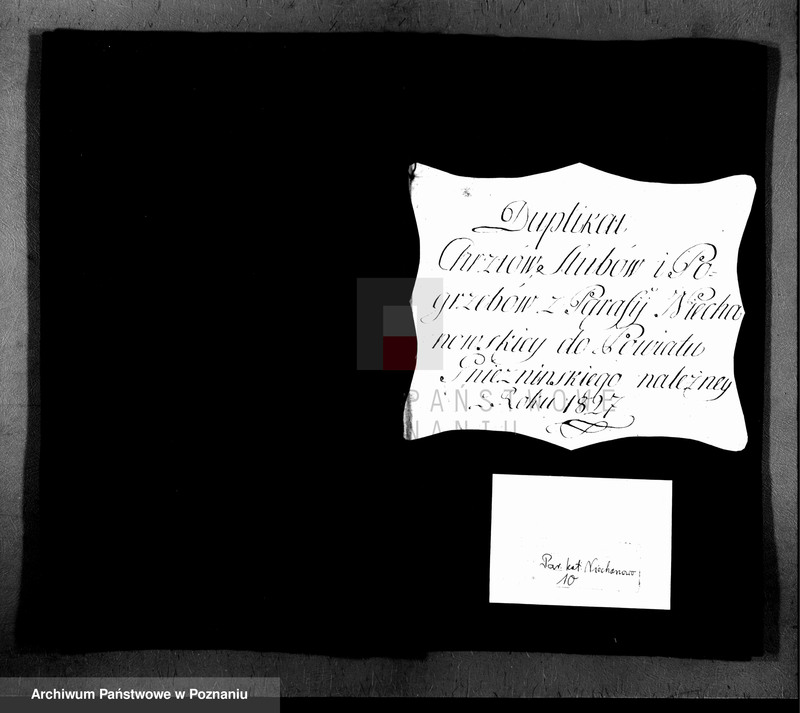 Duplikat
Chrztów, Slubów i Po-
grzebów z Parafÿ Niecha
nowskiey do Powiatu
Gnieznińskiego należney
z Roku 1827
PAŃSTWOWE
NANIU
Par. kat. Niechanowo
10
Archiwum Państwowe w Poznaniu